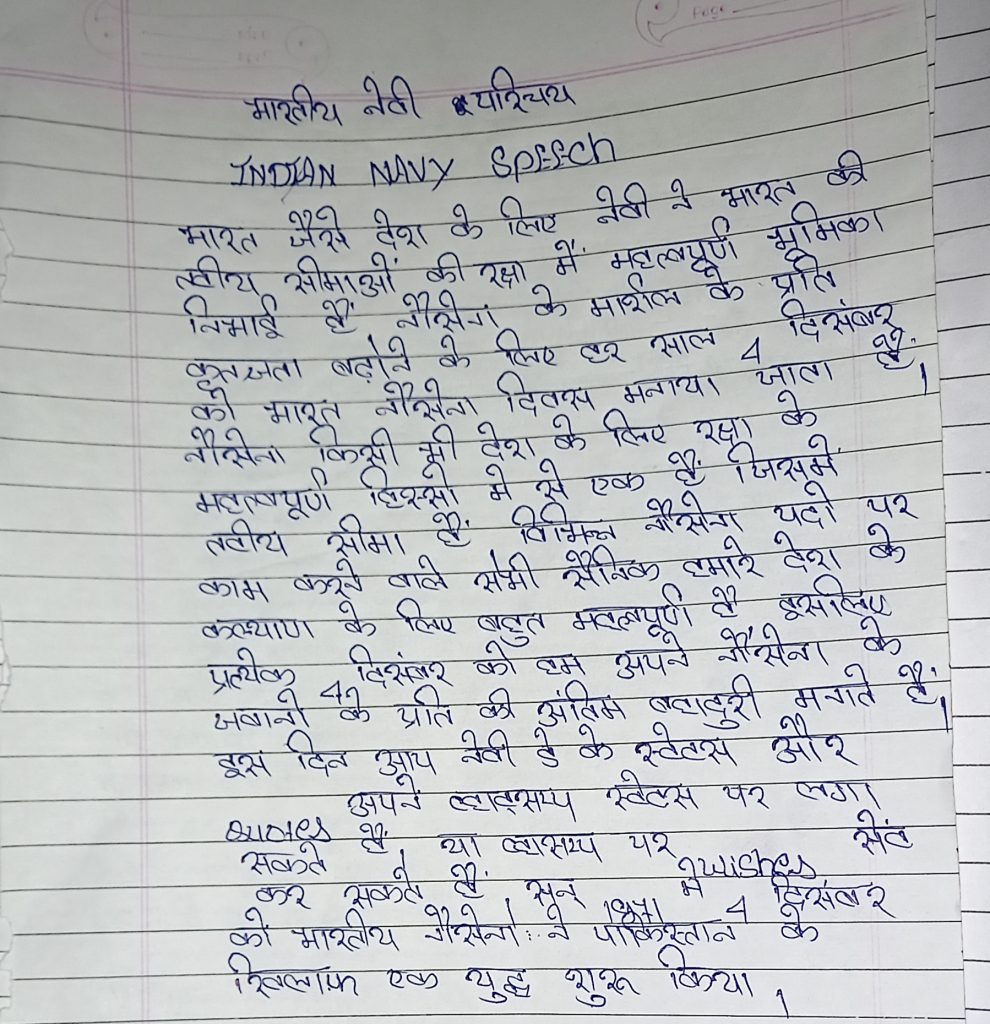 Page
भारतीय नेवी परिचय
INDIAN NAVY SPEECH
भारत जैसे देश के लिए नेवी ने भारत की
त्वीय सीमाओं की रक्षा में महत्वपूर्ण भूमिका
निभाई हैं नौसेना के मार्शल के प्रति
कृतज्ञता बढ़ाने के लिए हर साल 4 दिसंबर
को भारत नौसेना दिवस मनाया जाता है।
नौसेना किसी भी देश के लिए रक्षा के
महत्वपूर्ण हिस्सो मे से एक हैं जिसमें
तवीय सीमा हैं विभिन्न नौसेना पदो पर
काम करने वाले सभी सैनिक हमारे देश के
कल्याण के लिए बहुत महत्वपूर्ण है इसलिए
प्रत्येक 4 दिसंबर को हम अपने नौसेना के
जवानो के प्रति की अंतिम बहादुरी मनाते हैं।
इस दिन आप नेवी डे के स्टेटस और
Quotes अपने व्हाट्सप्प स्टेटस पर लगा
सकते हैं या व्हासप्प पर wishes सेंट
कर सकते हैं सन् 1971 में 4 दिसंबर
को भारतीय नौसेना ने पाकिस्तान के
खिलाफ एक युद्ध शुरू किया।